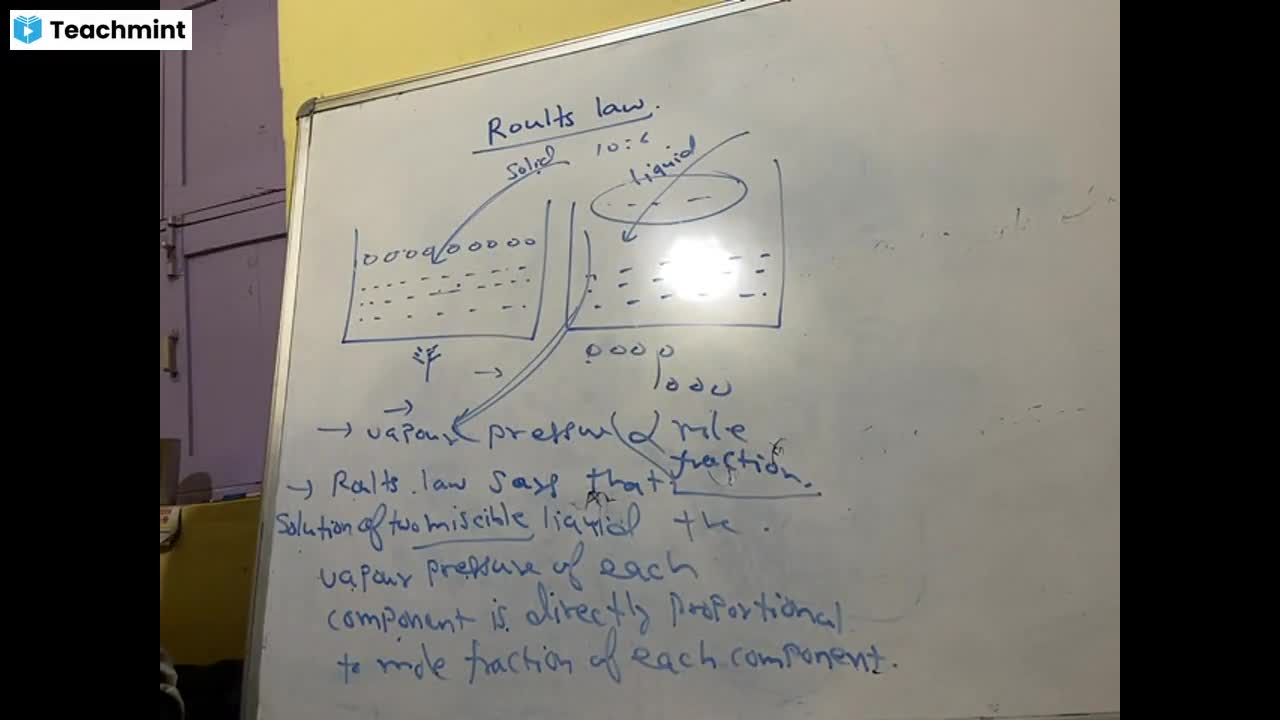 Teachmint
Roults law.
solid 10:6 liquid
→ vapour pressure ∝ mole
fraction.
→ Ralts law says that
Solution of two miscible liquid the
vapour pressure of each
component is directly proportional
to mole fraction of each component.